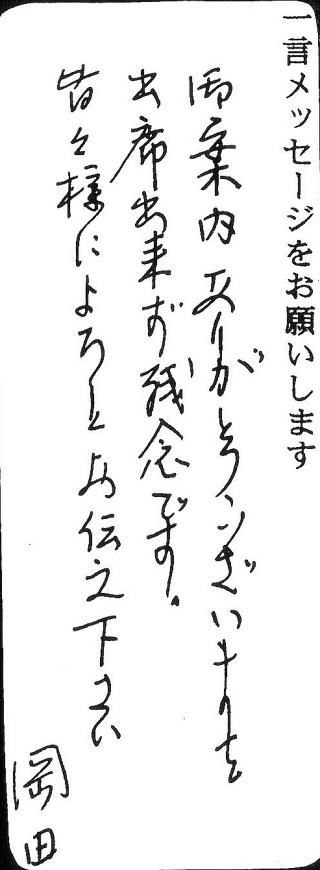 一言メッセージをお願いします
御案内ありがとうございました
出席出来ず残念です。
皆々様によろしくお伝え下さい
岡田